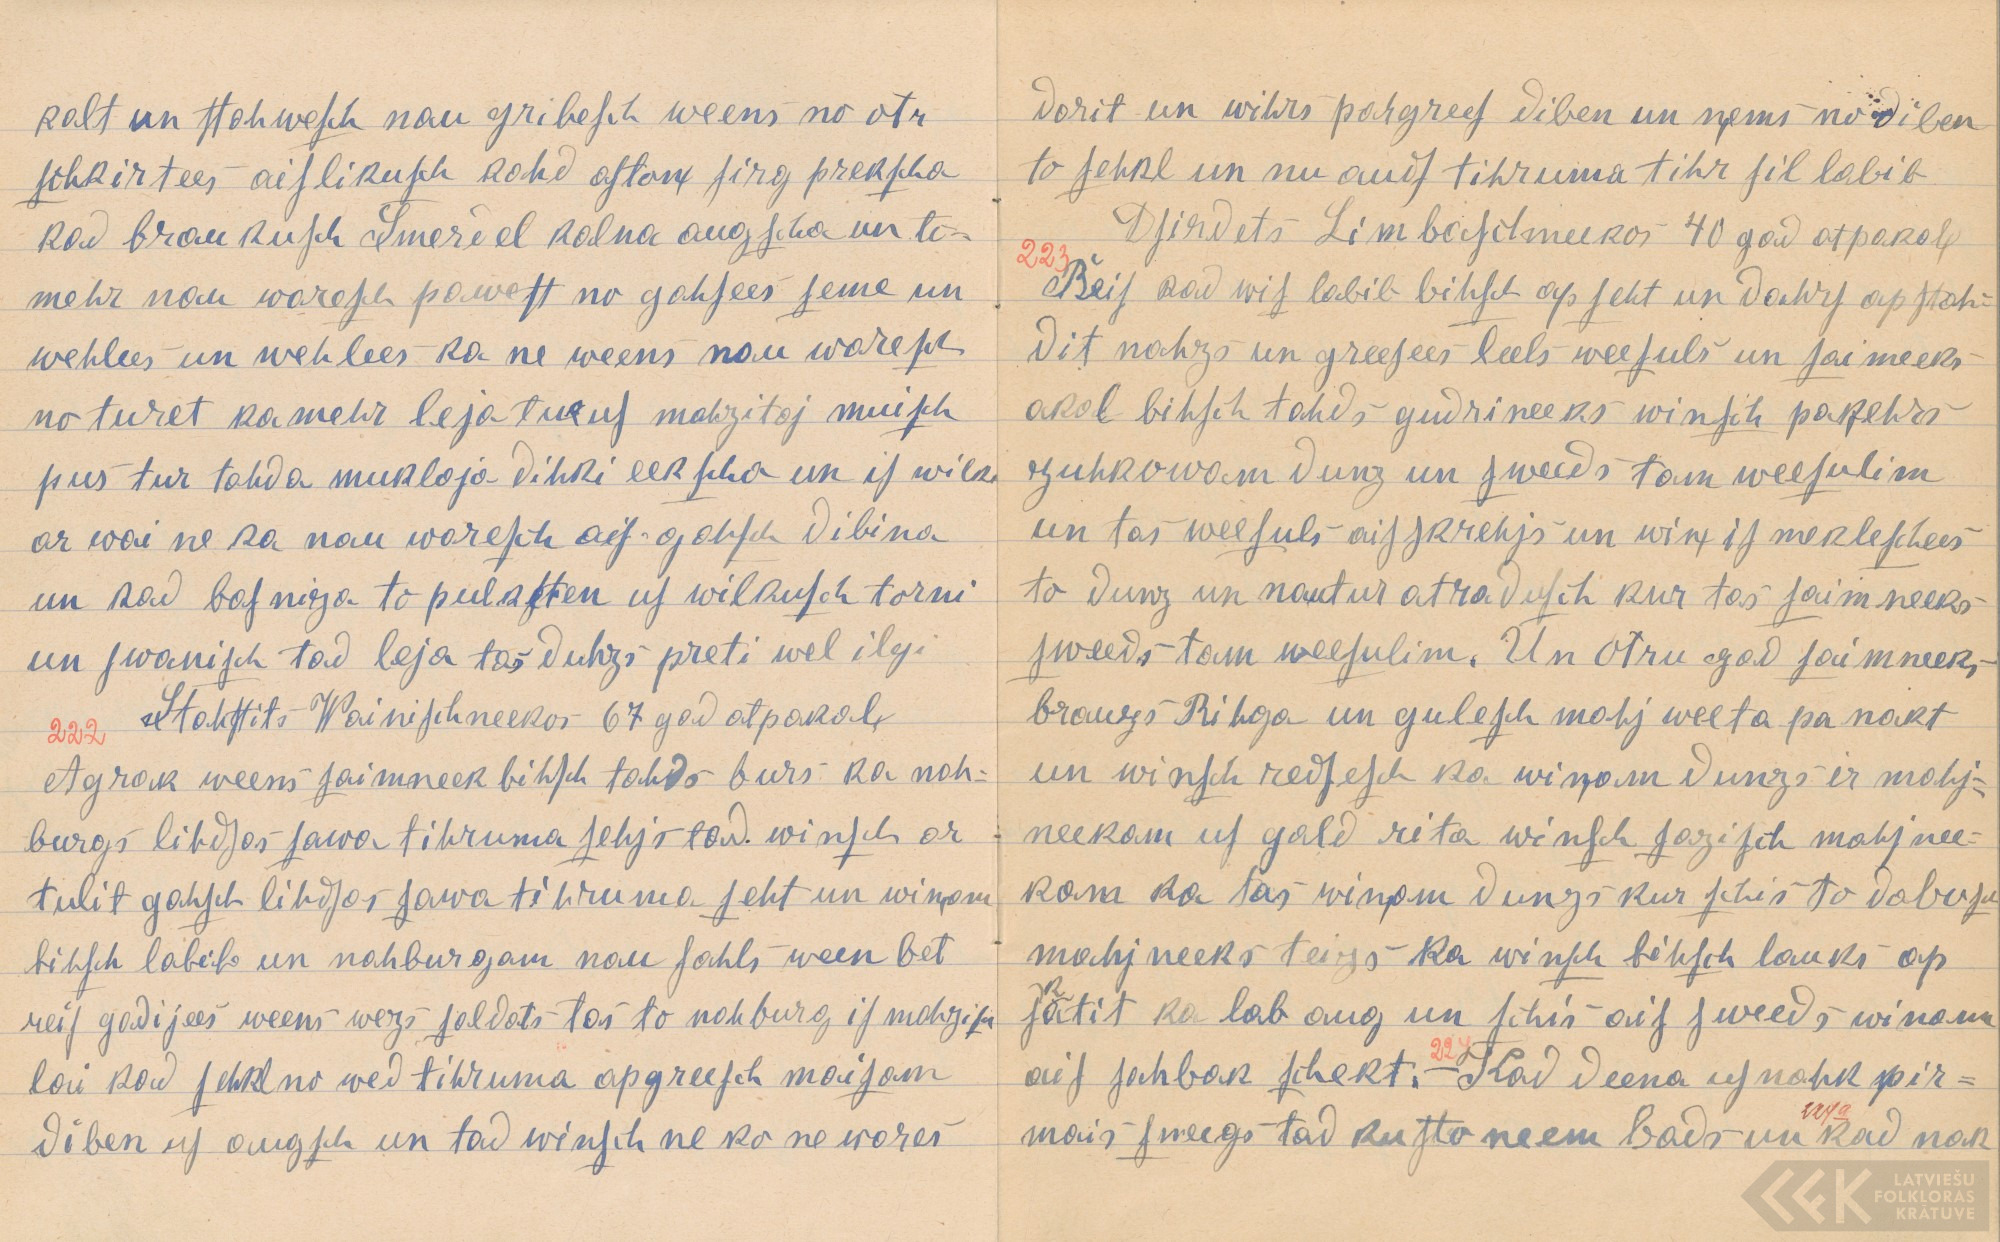 kalt un stahwesch nau gribesch weens no otr
schkirtees aislikusch kahd astoņ sirg prekscha
kad braukusch Smeŗdel kalna augscha un to-
mehr nau waresch pawest no gahsees seme un
wehlees un wehlees ka ne weens nau waresch
no turet kamehr leja tuwus mahzitaj muisch
pus tur tahda muklaja dihki eekscha un is wilk.
ar wai ne ka nau waresch ais-gahsch dibina
un kad basniza to pulksten us wilkusch torni
un swanisch tad leja tas duhzs preti wel ilgi
Stahstits Wainischneekos 67 gad atpakaļ
222
Agrak weens saimneek bihsch tahds burs ka nah-
burgs lihdsas sawa tihruma sehjs tad. winsch ar
tulit gahsch lihdsas sawa tihruma seht un wiņam
bihsch labib un nahburgam nau sahls ween bet
reis gadijees weens wezs saldats tas to nahburg is mahzisch
lai kad sehkl no wed tihruma apgreesch maisam
diben us augsch un tad winsch ne ko ne wares
darit un wihrs pargrees diben un ņems no diben
to sehkl un nu auds tihruma tihr sil labib
Dsirdets Limbaschneekos 40 gad atpakaļ
223
Reis kad wis labib bihsch ap seht un dahrs apstah-
dit nahzs un greesees leels weesuls un saimeeks
akal bihsch tahds gudrineeks winsch pakehrs
zuhkowam dunz un sweeds tam weesulim
un tas weesuls aisskrehjs un wiņ is meklesches
to dunz un nau tur atradusch kur tas saimneeks
sweeds tam weesulim. Un otru gad saimneeks
brauzs Rihga un gulesch mahj weeta pa nakt
un winsch redsesch ka wiņam dunzs ir mahj-
neekam us gald rita winsch sazisch mahjnee-
kam ka tas wiņam dunzs kur schis to dabusu
mahjneeks teizs ka winsch bihsch lauks ap
skatit ka lab aug un schis ais sweeds winam
ais sahbak schekt. - 224 Kad deena us nahk pir-
mais sneegs tad kusto neem bads un 224a kad nak
LATVIEŠU
FOLKLORAS
KRĀTUVE